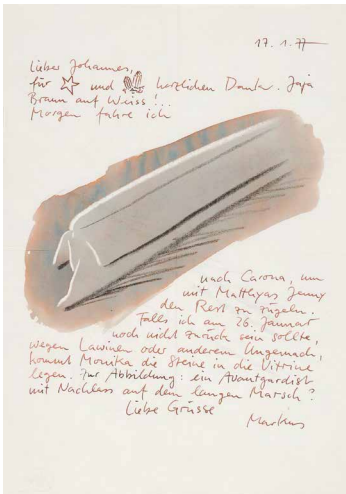 17.1.77
Lieber Johannes,
für und herzlichen Dank. Jaja
Braun auf Weiss!...
Morgen fahre ich
nach Carona, um
mit Matthyas Jenny
den Rest zu zügeln.
Falls ich am 26. Januar
noch nicht zurück sein sollte,
wegen Lawinen oder anderem Ungemach,
kommt Monika die Steine in die Vitrine
legen. Zur Abbildung: ein Avantgardist
mit Nachlass auf dem langen Marsch?
Liebe Grüsse
Markus